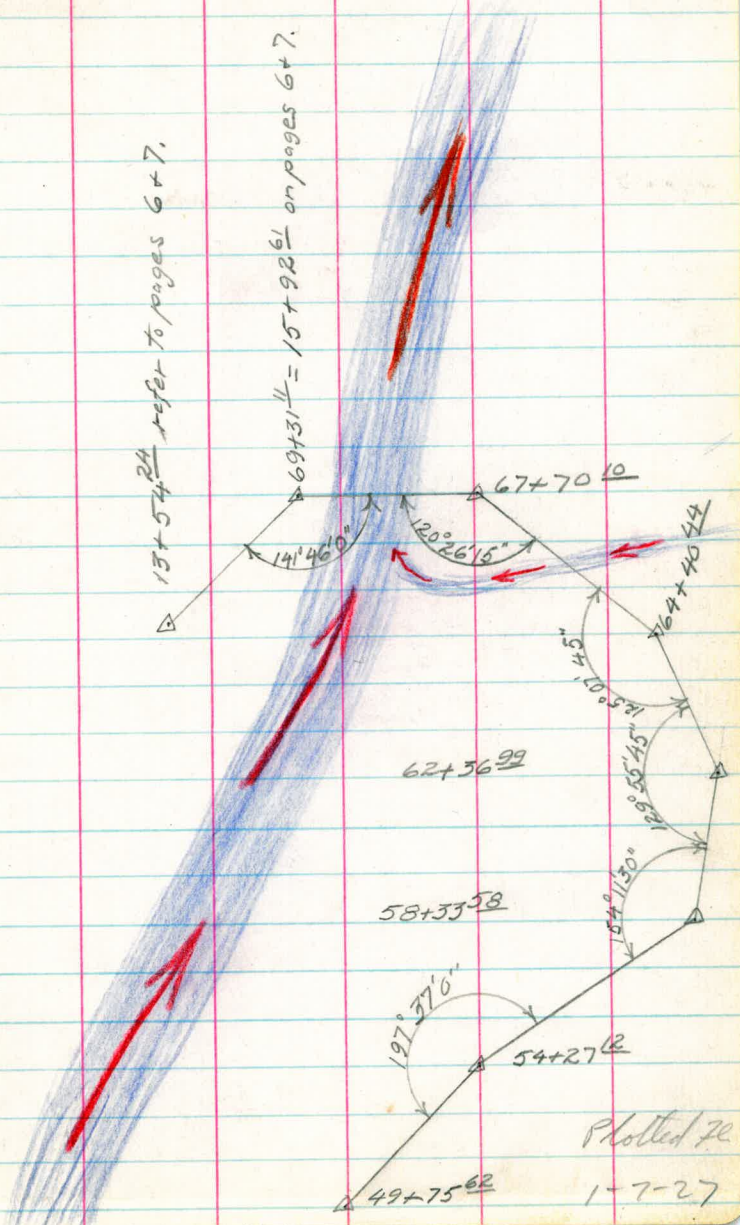 13+54 24 refer to pages 6+7.
69+31 11 = 15+92 61 on pages 6+7.
67+70 10
141°46'0"
120°26'15"
64+40 44
125°07'45"
62+36 99
129°55'45"
58+33 58
154°11'30"
197°37'0"
54+27 12
49+75 62
Plotted
1-7-27